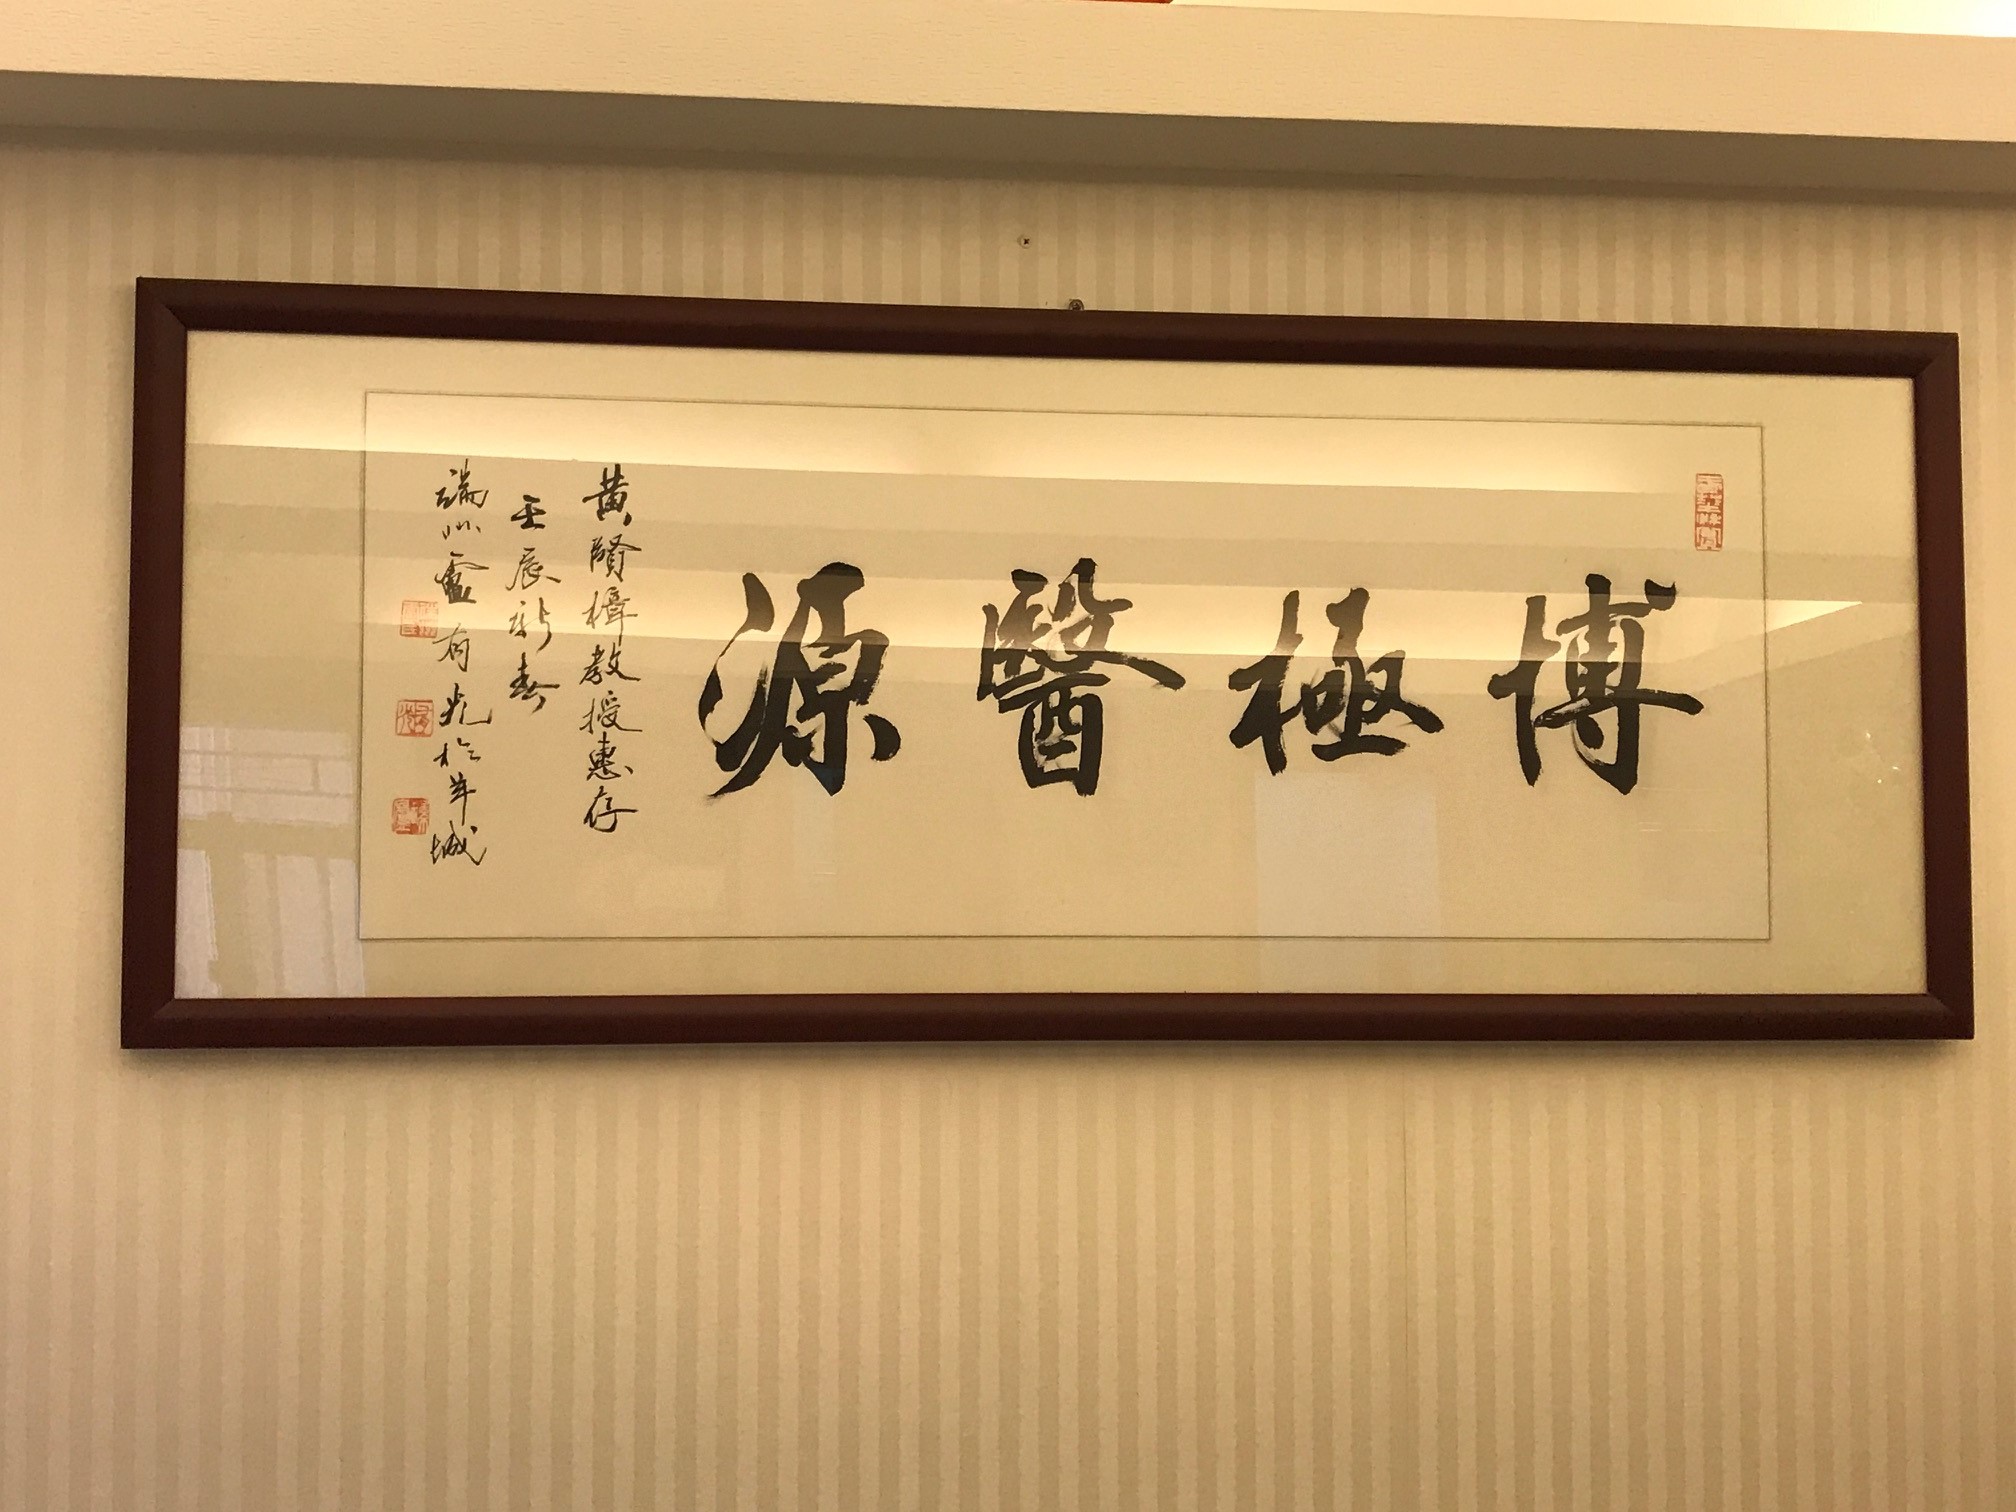 博極醫源
黃賢樟教授惠存
壬辰新春
端州盧有光於羊城